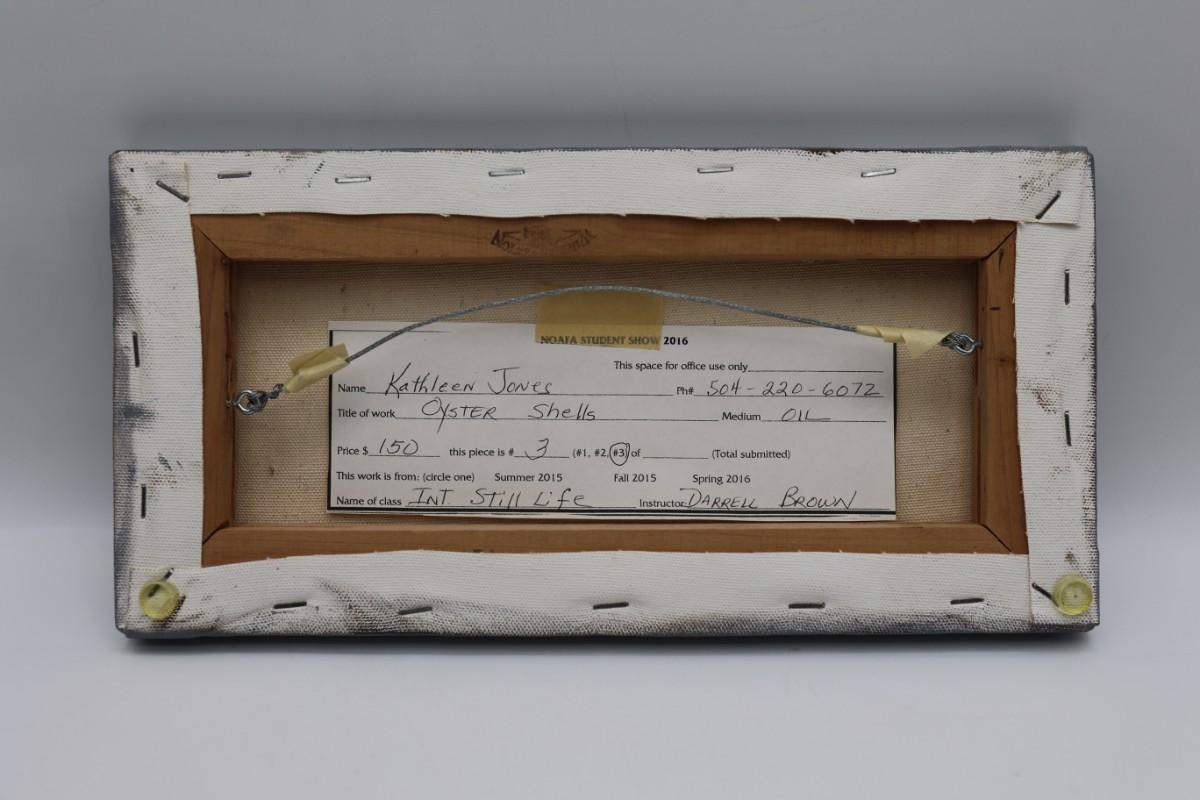 NOAFA STUDENT SHOW 2016
This space for office use only
Name Kathleen Jones Ph# 504-220-6072
Title of work OYSTER Shells Medium OIL
Price $ 150 this piece is # 3 (#1, #2, #3) of (Total submitted)
This work is from: (circle one) Summer 2015 Fall 2015 Spring 2016
Name of class INT. Still Life Instructor DARRELL BROWN